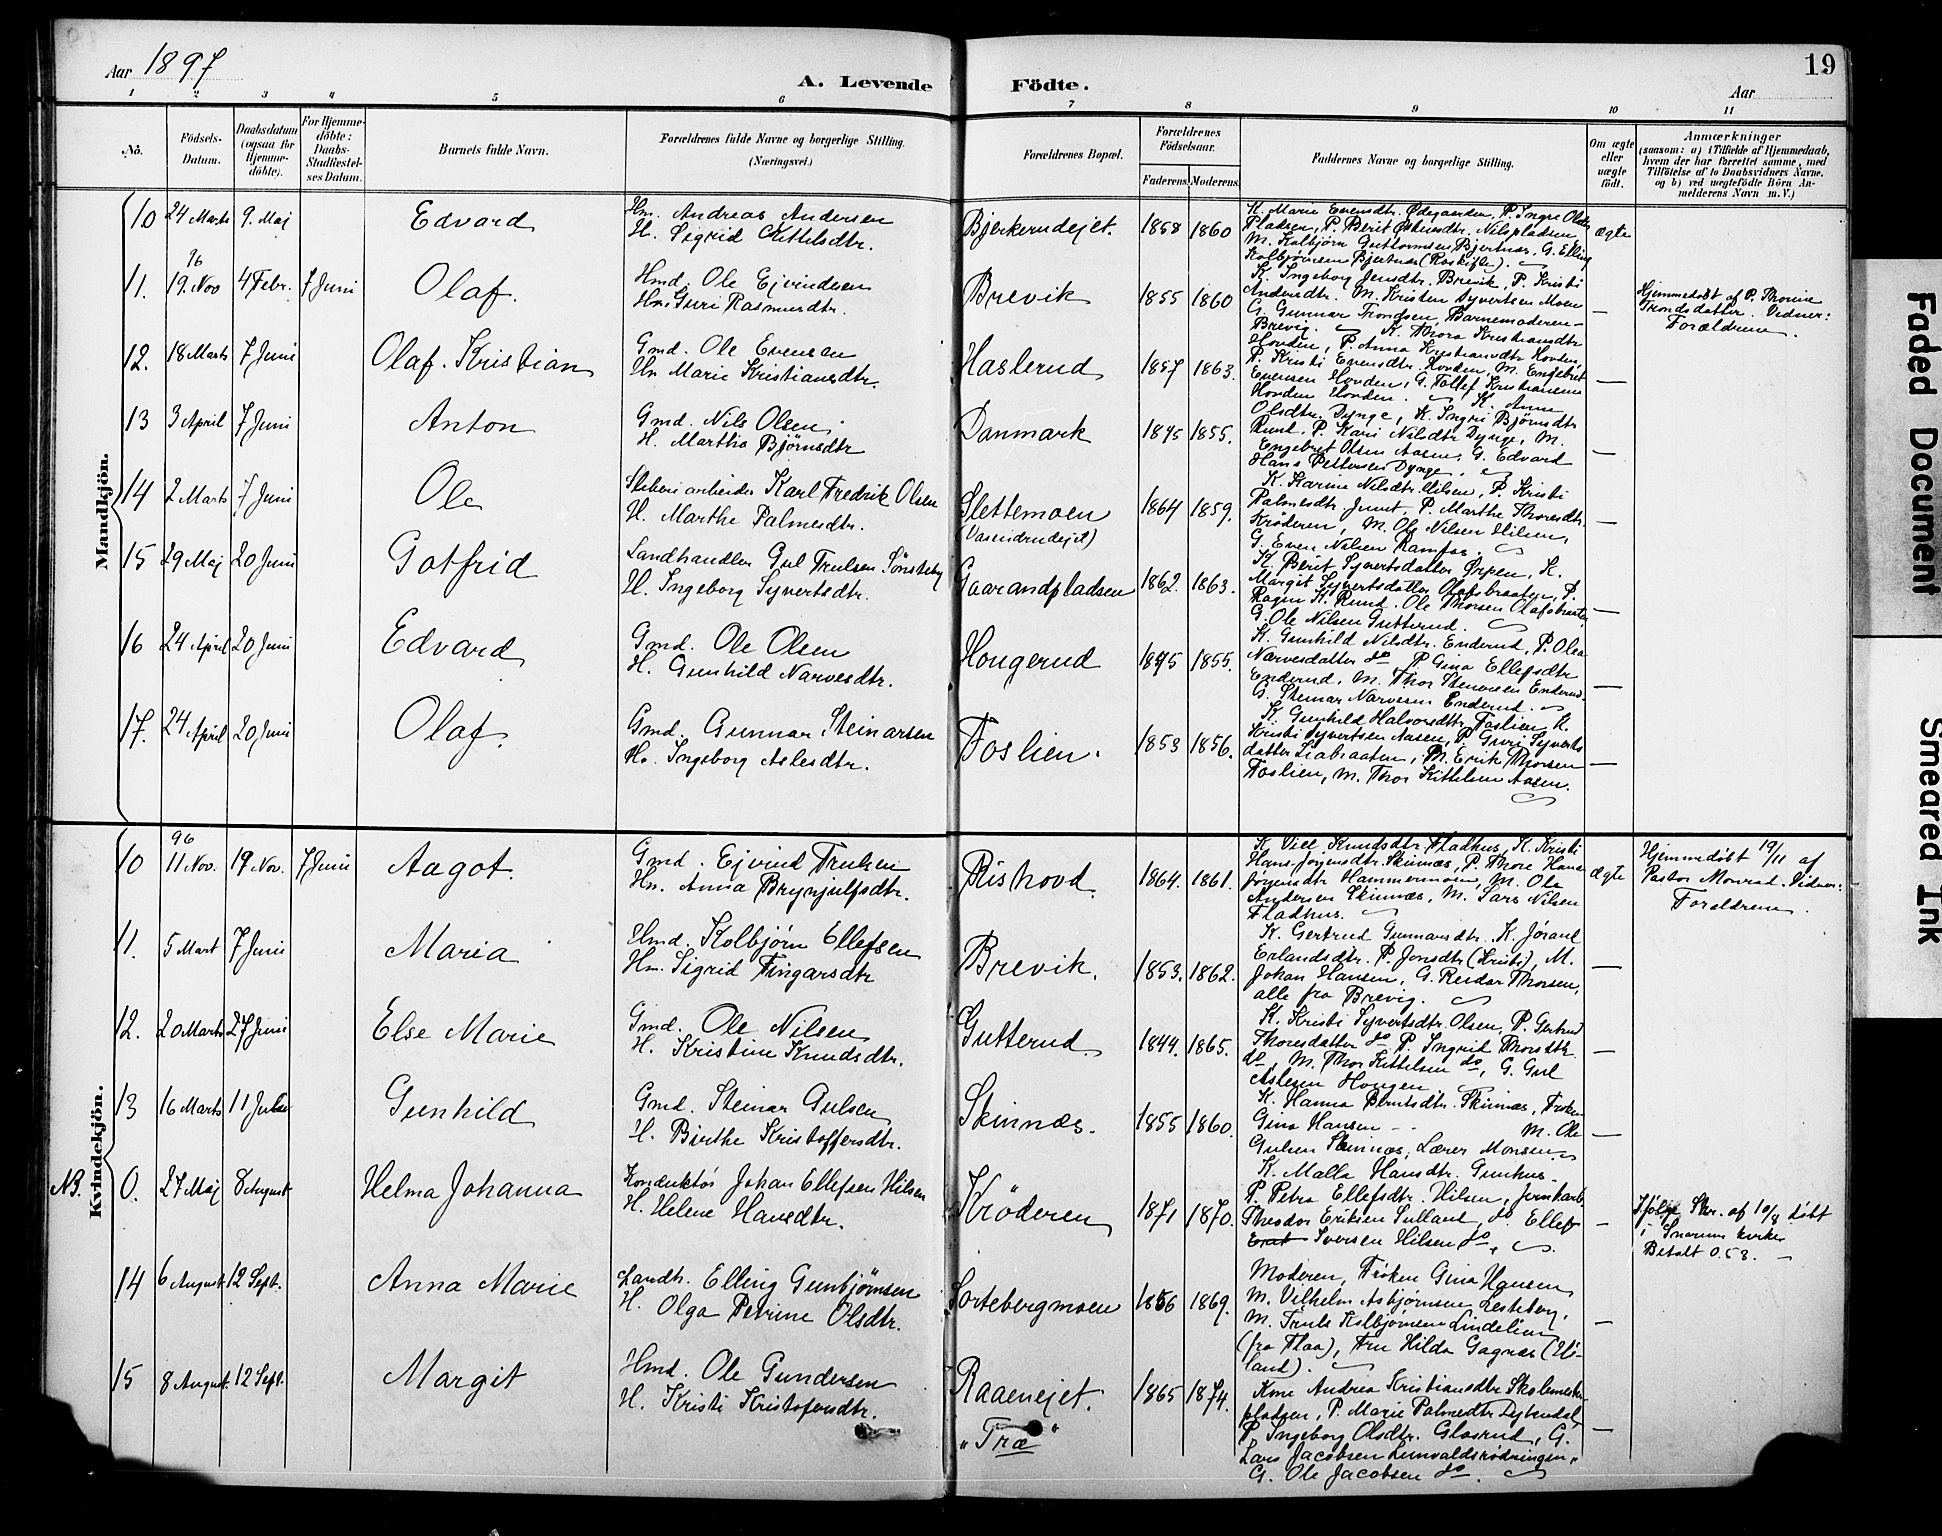 Aar 1897
A. Levende Födte.
19
Aar
1 2 3 4 5 6 7 8 9 10 11
No.
Födsels-Datum.
Daabsdatum (ogsaa for Hjemme-döbte).
For Hjemme-döbte: Daabs-Stadfæstel-ses Datum.
Barnets fulde Navn.
Forældrenes fulde Navne og borgerlige Stilling. (Næringsvei.)
Forældrenes Bopæl.
Forældrenes Födselsaar.
Faderens. Moderens.
Faddernes Navne og borgerlige Stilling.
Om ægte eller uægte födt.
Anmærkninger
(saasom: a) i Tilfælde af Hjemmedaab,
hvem der har forrettet samme, med
Tilföielse af to Daabsvidners Navne,
og b) ved uægtefödte Börn An-
melderens Navn m. V.)
Mandkjön.
10 24 Marts 9. Maj Edvard
Hm. Andreas Andersen
H. Sigrid Kittelsdtr.
Bjerkerudejet. 1858 1860
K. Marie Evensdtr. Ødegaarden, P. Ingri Olsdtr
Pladsen, P. Berit Østensdtr. Nilspladsen
M. Kolbjørn Guttormsen Bjertnæs, G. Elling
Kolbjørnsen Bjertnæs
ægte
11. 96 19. Nov 4 Febr. 7 Juni Olaf.
Hmd. Ole Ejvindsen
Hm. Guri Rasmusdtr.
Brevik 1855 1860
K. Ingeborg Jensdtr. Brevik, P. Kristi
Andersdtr. M. Kristen Syvertsen Moen
G. Gunnar Trondsen, Barnemoderen -
Brevig.
—
Hjemmedøbt af P. Thonie
Trondsdatter. Vidner:
Forældrene.
12. 18 Marts 7 Juni Olaf Kristian
Gmd. Ole Evensen
Hu. Marie Kristiansdtr.
Haslerud 1857 1863.
K. Thora Kristiansdtr
Hovden, P. Anna Kristiansdtr Hovden,
P. Kristi Evensdtr. Hovden, M. Engebret
Evensen Hovden, G. Tollef Kristiansen
Hovden
—
13 3 April 7 Juni Anton
Gmd. Nils Olsen
H. Martha Bjørnsdtr
Danmark 1845 1855.
K. Anne
Olsdtr. Dynge, K. Ingri Bjørnsdtr
Rund, P. Kari Nilsdtr Dynge, M.
Engebret Olsen Aasen, G. Edvard
Hans Pettersen Dynge.
—
14 2 Marts 7 Juni Ole
Sliberiarbeider Karl Fredrik Olsen
H. Marthe Palmesdtr.
Slettemoen
1864 1859.
K. Karine Nilsdtr. Hilsen, P. Kristi
Palmesdtr. Juvet, P. Marthe Thoresdtr.
Krøderen, M. Ole Nilsen Hilsen,
G. Even Nilsen Ramfos.
—
15 29 Maj 20 Juni Gotfrid
Landhandler Gul Trulsen Sønsteby
H. Ingeborg Syvertsdtr.
Gaarandpladsen 1862. 1863.
K. Berit Syvertsdatter Ørpen, K.
Margit Syvertsdatter Olafsbraaten, P.
Ragen K. Rund. Ole Thorsen Olafsbraaten
G. Ole Nilsen Gutterud.
—
16 24 April 20 Juni Edvard
Gmd. Ole Olsen
H. Gunhild Narvesdtr.
Hougerud 1845 1855.
K. Gunhild Nilsdtr. Enderud, P. Olea
Narvesdatter do, P. Gina Ellefsdtr
Enderud, M. Thor Stenersen Enderud
G. Steinar Narvesen Enderud.
—
17. 24 April 20 Juni Olaf.
Gmd. Gunnar Steinarsen
H. Ingeborg Aslesdtr.
Foslien. 1853 1856.
K. Gunhild Halvorsdtr Foslien K.
Kristi Syvertsen Aasen, P. Guri Syverts
datter Liabraaten, M. Erik Thorsen
Foslien, M. Thor Kittelsen Aasen.
—
Kvindekjön.
10 96 11 Nov. 19 Nov. 7 Juni Aagot.
Gmd. Ejvind Trulsen
Hu. Anna Brynjulfsdtr.
Rishovd. 1864. 1861.
K. Viel Knudsdtr. Fladhus, K. Kristi
Hans-Jørgensdtr. Skinnæs, P. Thore Hans
Jørgensdtr Hammermoen, M. Ole
Andersen Skinnæs, M. Lars Nilsen
Fladhus.
ægte
Hjemmedøbt 19/11 af
Pastor Monrad. Vidner:
Forældrene.
11. 5 Mart 7 Juni Maria
Hmd. Kolbjørn Ellefsen
Hu. Sigrid Fingarsdtr
Brevik. 1853. 1862.
K. Gertrud Gunnarsdtr. K. Jørand
Erlandsdtr. P. Jonsdtr (Kristi), M.
Johan Hansen, G. Reidar Thorsen,
alle fra Brevig.
—
12. 20 Marts 27 Juni Else Marie
Gmd. Ole Nilsen
H. Kristine Knudsdtr.
Gutterud. 1844. 1865.
K. Kristi Syvertsdtr. Olsen, P. Gertrud
Thoresdatter do P. Ingrid Thorsdtr.
do, M. Thor Kittelsen do, G. Gul
Aslesen Hougen.
—
13 16 Marts 11 Juli Gunhild
Gmd. Steinar Gulsen
H. Birthe Kristoffersdtr.
Skinnæs. 1855 1860.
K. Hanna Berntsdtr. Skinnæs, Frøken
Gina Hansen - - M. Ole
Gulsen Skinnæs, Lærer Monsen.
—
NB. 0. 27 Maj 8 August Helma Johanna
Konduktør Johan Ellefsen Hilsen
H. Helene Hansdtr.
Krøderen 1871 1870.
K. Malla Hansdtr. Gunhus.
P. Petra Ellefsdtr. Hilsen, Jernbanb.
Theodor Eriksen Sulland, do. Ellef
Iversen Hilsen do,
—
Ifølge Skr. af 10/8 døbt
i Snarum kirke
Betalt 0.58. —
14 6 August 12 Sept. Anna Marie
Landh. Elling Gunbjørnsen
H. Olga Petrine Olsdtr.
Sortebergmoen 1866 1869.
Moderen, Frøken Gina Hansen
M. Vilhelm Asbjørnsen Lesteberg,
M. Truls Kolbjørnsen Lindelien
(fra Flaa), Fru Hilda Gagnæs (Ul-
land).
—
15 8 August. 12 Sept. Margit
Hmd. Ole Gundersen
H. Kristi Kristofersdtr.
Raaenejet.
"Træ"
1865 1874.
Kone Andrea Kristiansdtr Skolemester
pladsen, P. Marie Palmesdtr Dybendal,
P. Ingeborg Olsdtr. Glesrud, G.
Lars Jacobsen Lunvaldsrødningen,
G. Ole Jacobsen do.
—
Faded Document
Smeared Ink